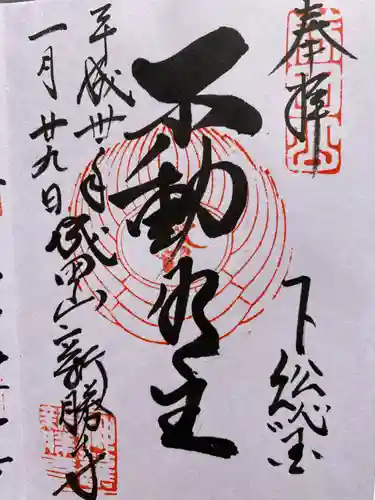 奉拝
下総国
不動明王
平成卅年
一月廿九日 成田山新勝寺